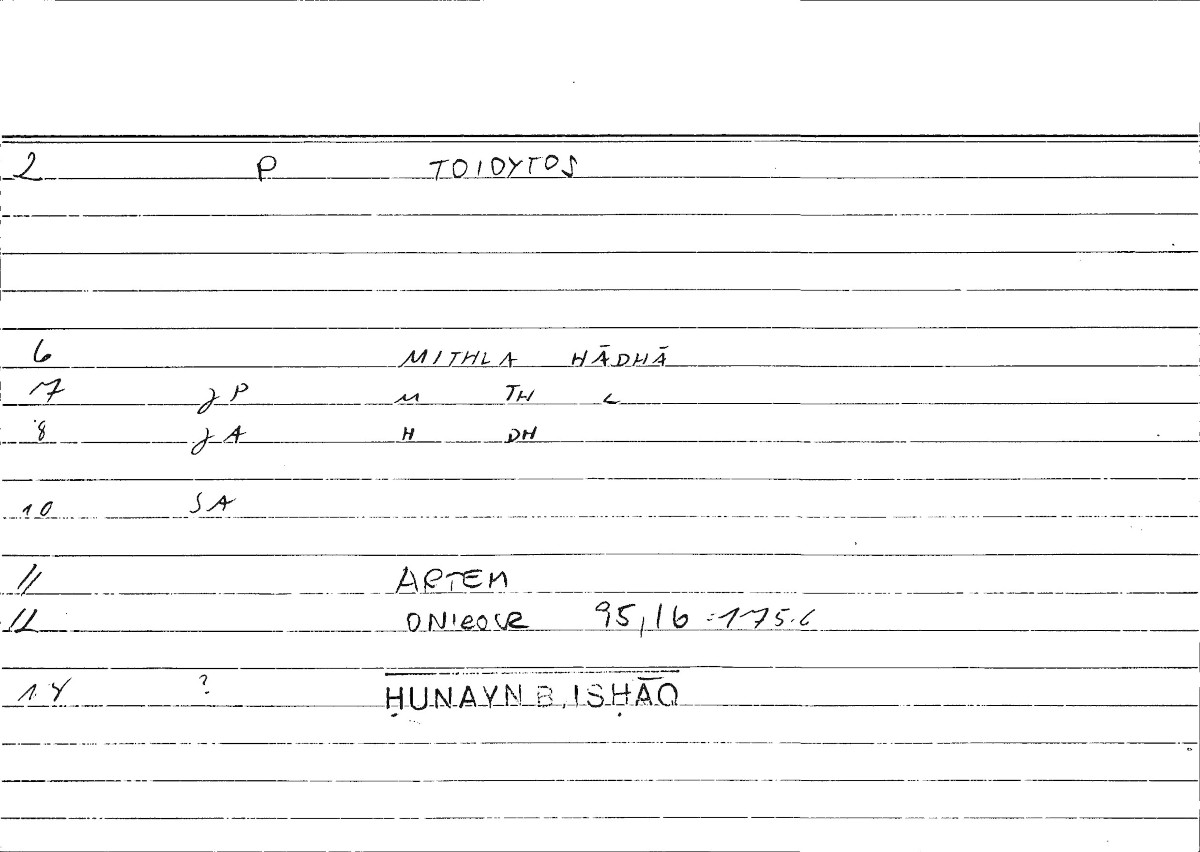 2 P TOIOYTOS
6 MITHLA HĀDHĀ
7 JP M TH L
8 JA H DH
10 SA
11 ARTEM
12 ONIROCR 95,16 = 175.6
14 ? ḤUNAYN B. ISḤĀQ